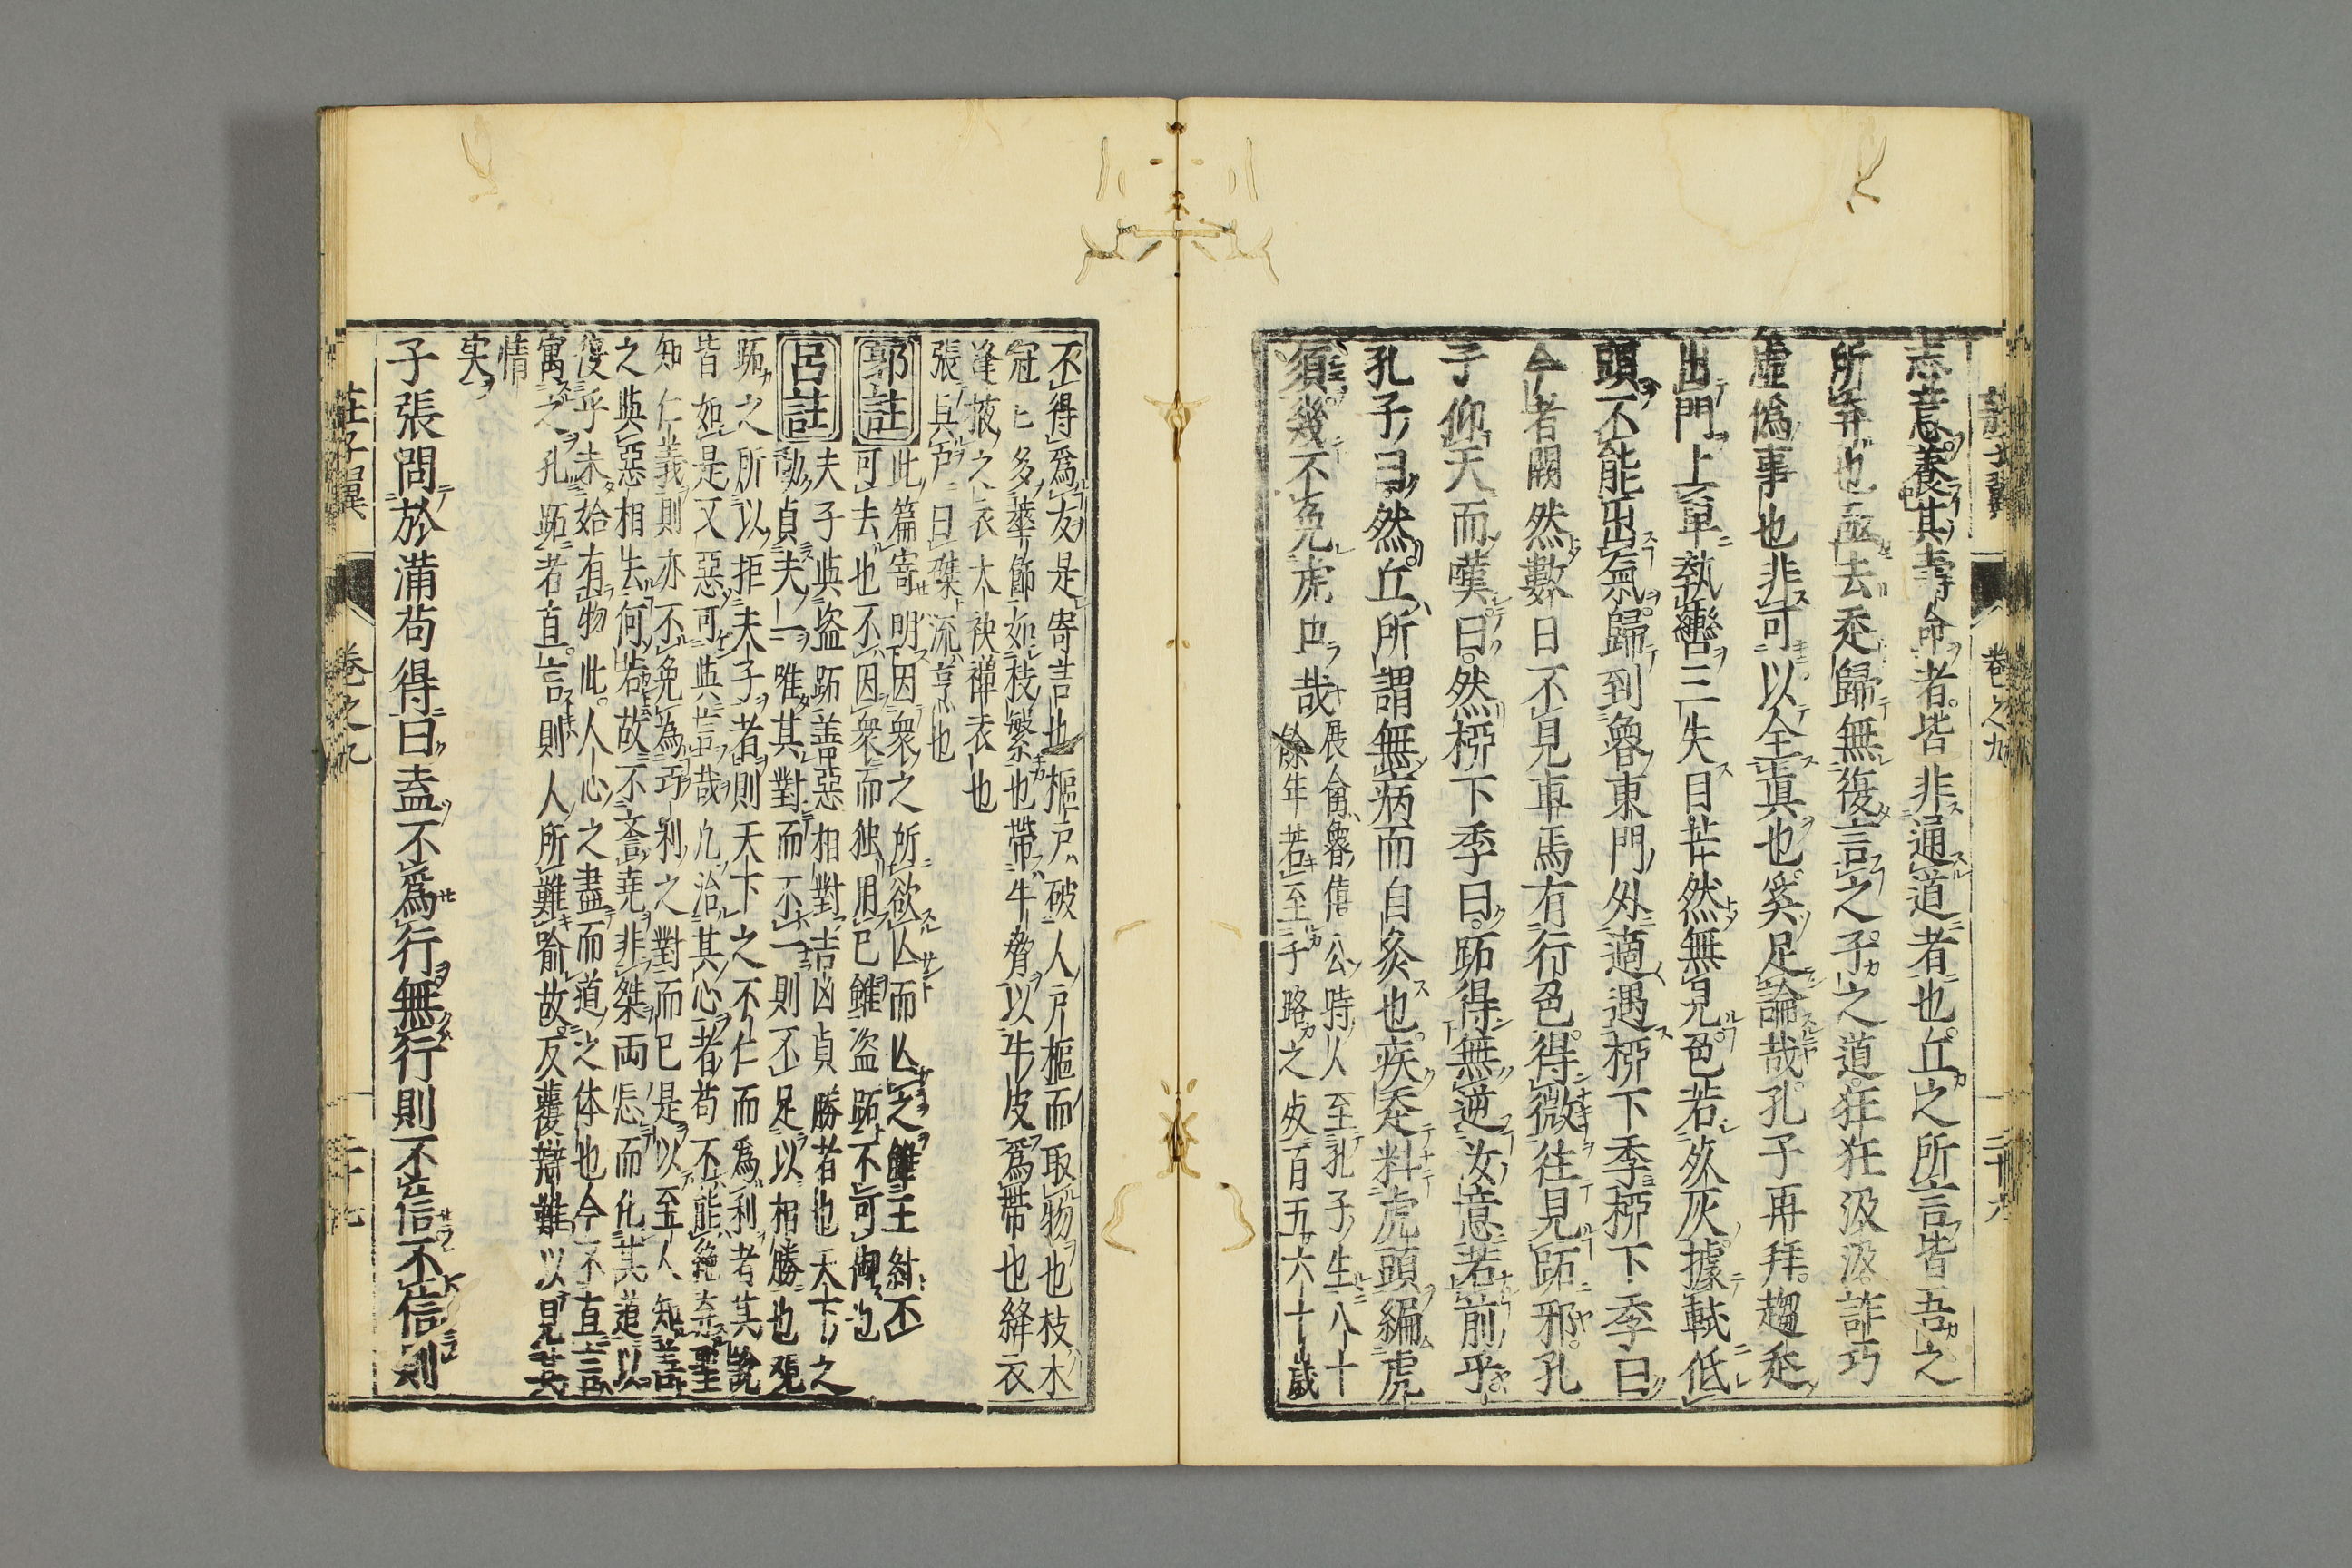 莊子翼 卷之九 二十六
志意養其壽命者皆非通道者也丘之所言皆吾之
所弃也亟去走歸無復言之子之道狂狂汲汲詐巧
虚偽事也非可以全真也奚足論哉孔子再拜趨走
出門上車執轡三失目芒然無見色若死灰據軾低
頭不能出氣歸到魯東門外適遇桞下季桞下季曰
今者闕然數日不見車馬有行色得微往見跖邪孔
子仰天而嘆曰然桞下季曰跖得無逆汝意若前乎
孔子曰然丘所謂無病而自灸也疾走料虎頭編虎
須幾不免虎口哉
展禽魯僖公時人至孔子生八十
餘年若至子路之死百五六十歲
不得爲友是寄言也樞戸破人戸樞而取物也枝木
冠上多華飾如枝繁也帶牛脅以牛皮爲帶也縫衣
逢掖之衣大袂襌衣也
張兵戸曰磔流烹也
郭註 此篇寄明因衆之所欲亾而亾之雖王紂丕
可去也不因衆而独用已雖盗跖不可御也
呂註 夫子與盗跖善惡相對吉凶貞勝者也天下之
動貞夫一唯其對而不一則不足以相勝也觀
跖之所以拒夫子者則天下之不仁而爲利者其說
皆如是又惡可與言哉凢治其心者苟不能絶棄聖
知仁義則亦不免為巧利之對而已是以至人知善
之與惡相去何若故不譽堯非桀両忘而化其道以
復乎未始有物此人心之盡而道之体也今不直言
寓之孔跖者直言則人所難喻故反覆辯難以見其
情
実
子張問於滿苟得曰盍不爲行無行則不信不信則
莊子翼 卷之九 二十七